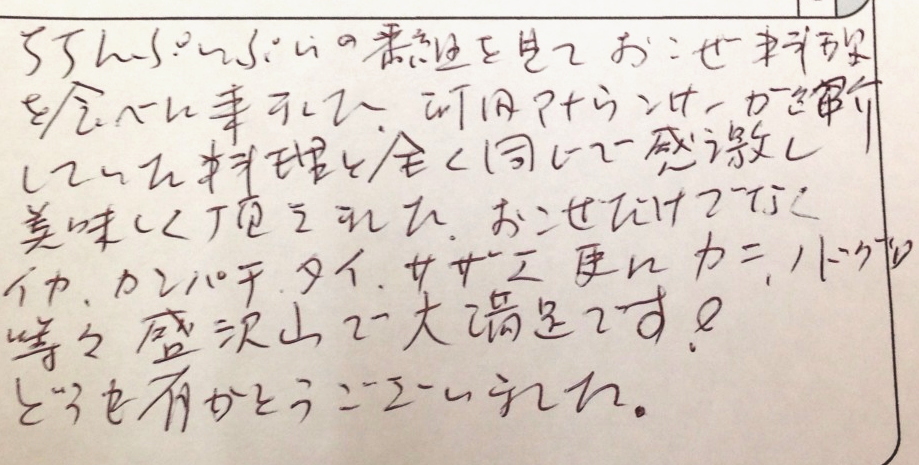 ちちんぷいぷいの番組を見ておこぜ料理
を食べに来ました、河田アナウンサーが紹介
していた料理と全く同じで感激し
美味しく頂きました。おこぜだけでなく
イカ、カンパチ、タイ、サザエ更にカニ、ノドグロ
等々盛沢山で大満足です!
どうも有がとうございました。